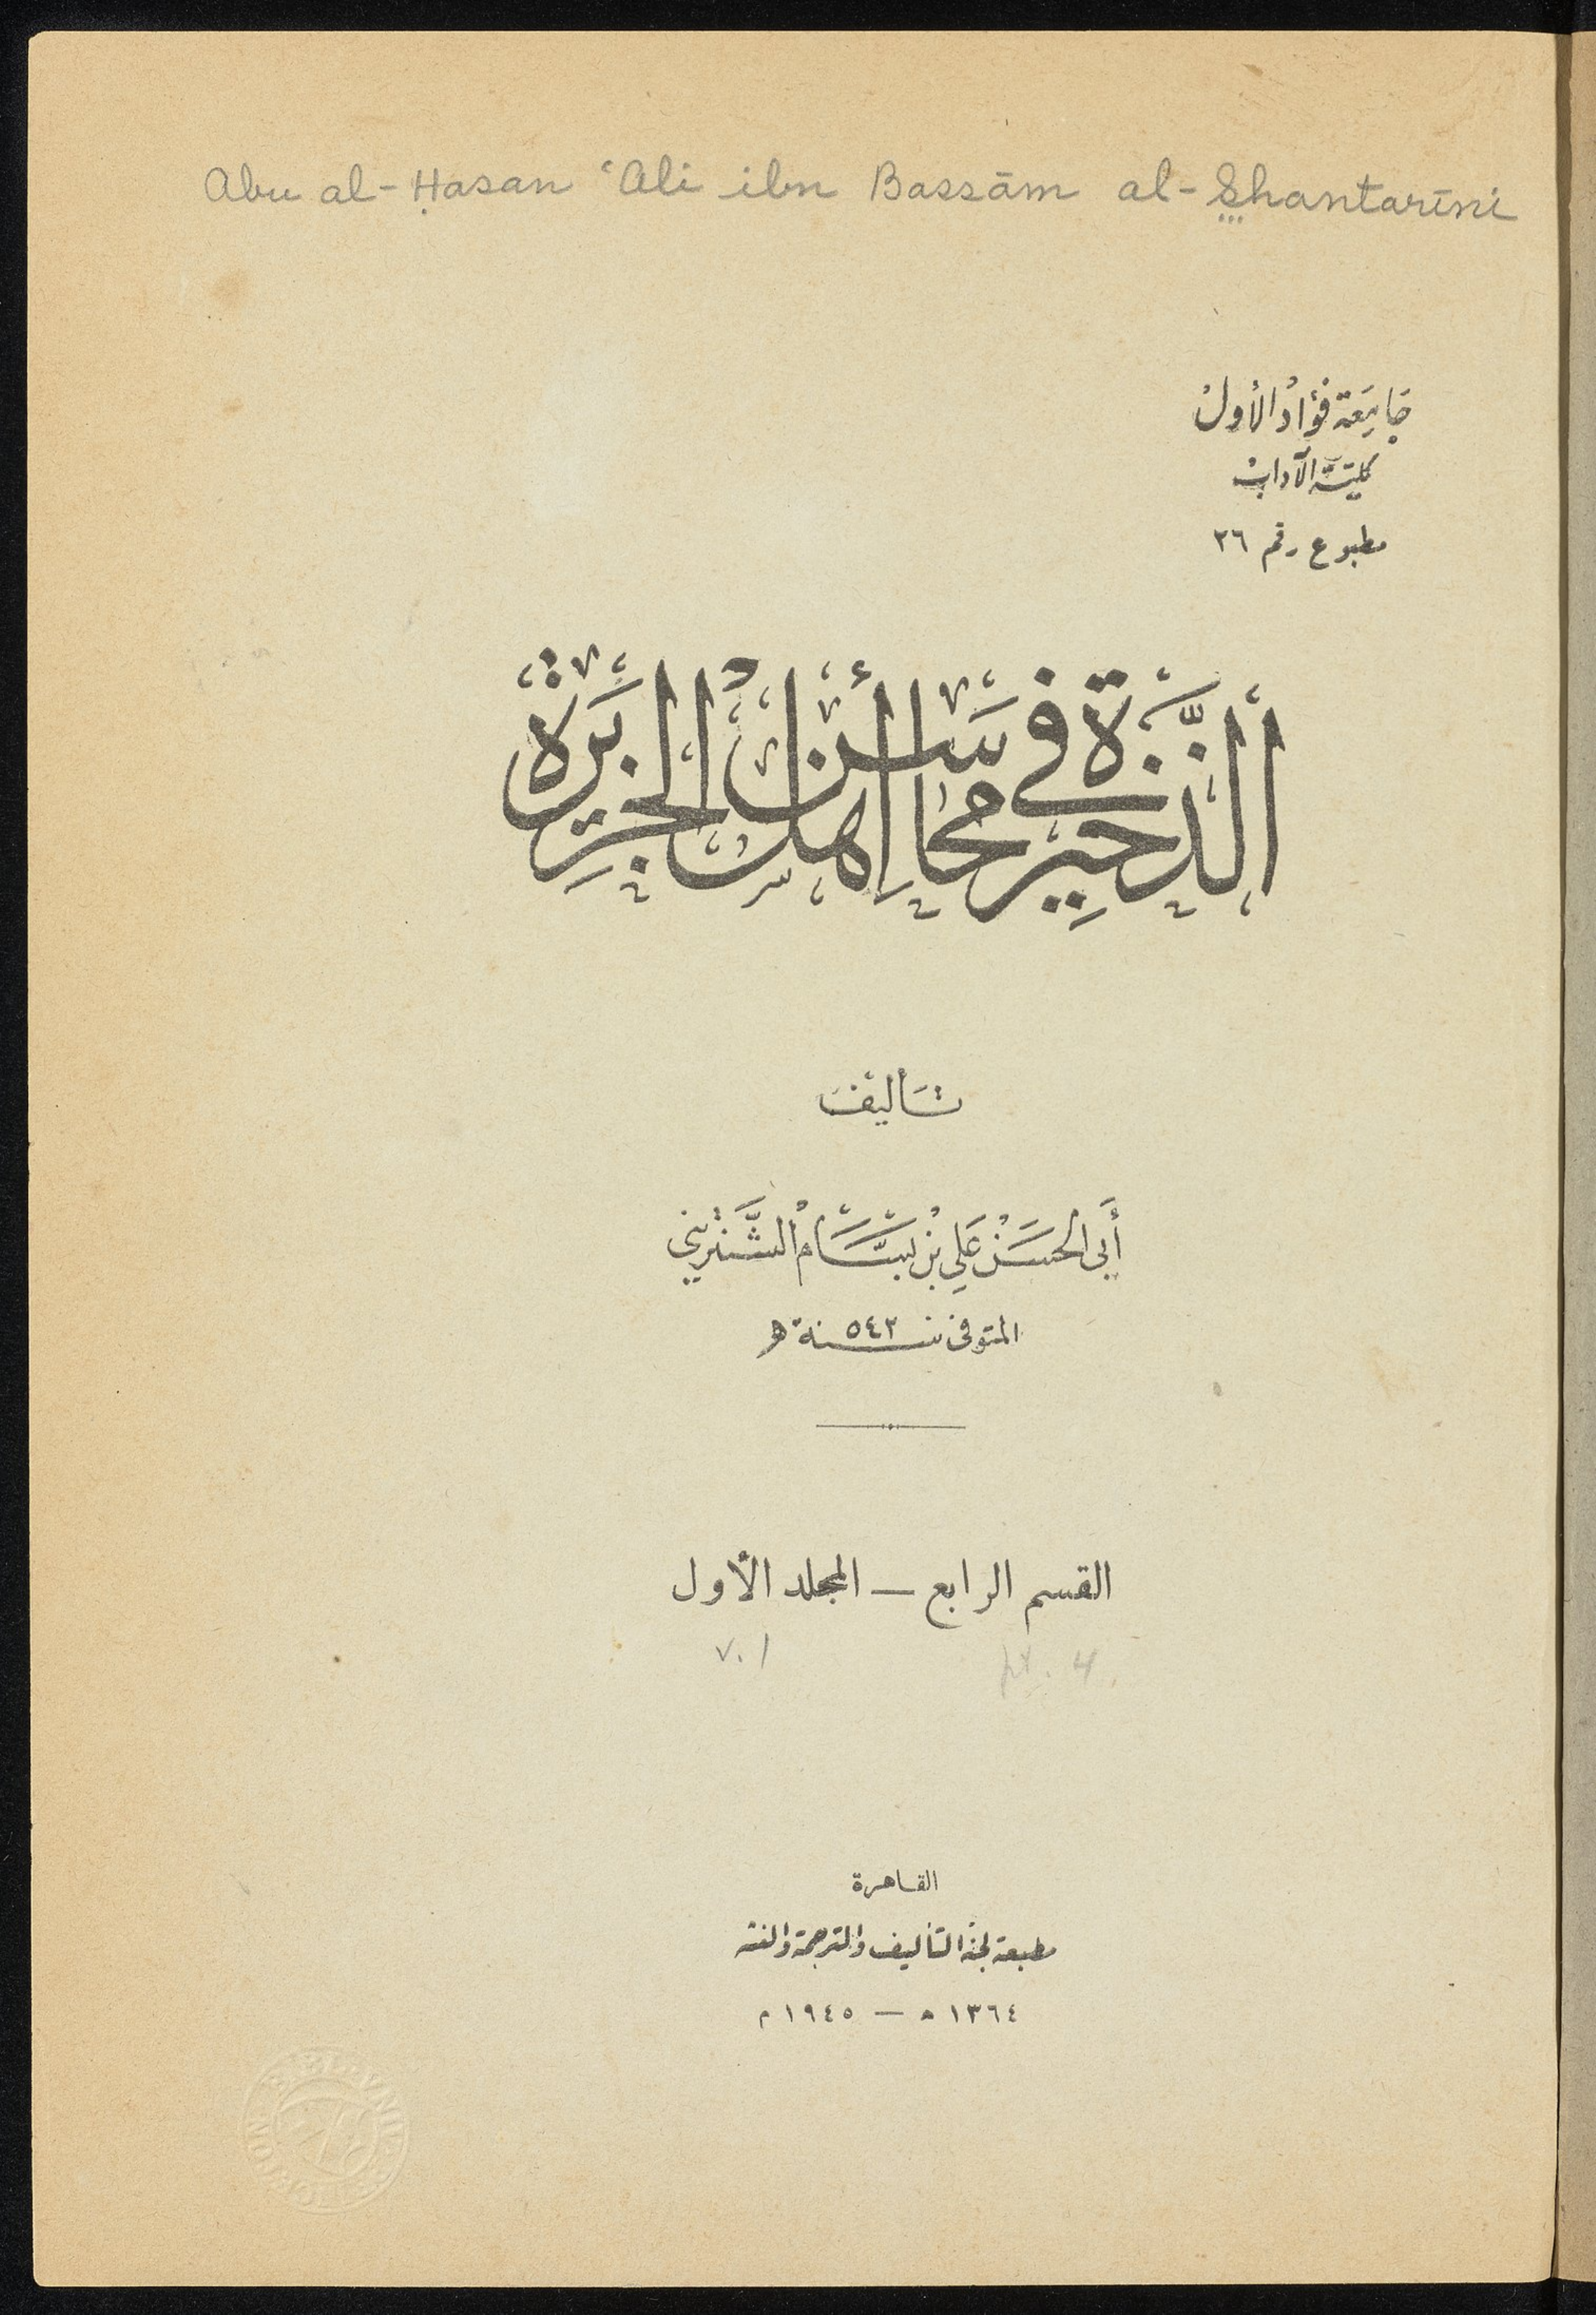 Abu al-Ḥasan ʿAli ibn Bassām al-Shantarīni
جامعة فؤاد الأول
كلية الآداب
مطبوع رقم ٢٦
الذخيرة في محاسن أهل الجزيرة
تأليف
أبي الحسن علي بن بسام الشنتريني
المتوفى سنة ٥٤٢ هـ
القسم الرابع — المجلد الأول
pt. 4 v. 1
القاهرة
مطبعة لجنة التأليف والترجمة والنشر
١٣٦٤ هـ — ١٩٤٥ م